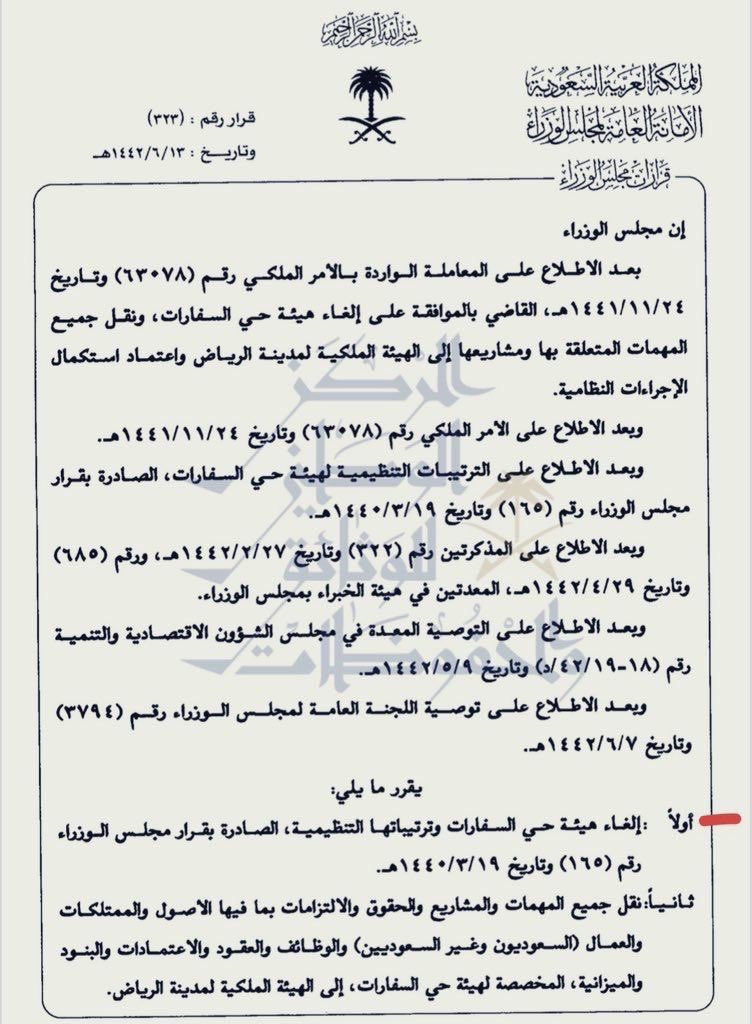 بسم الله الرحمن الرحيم
المملكة العربية السعودية
الأمانة العامة لمجلس الوزراء
قرار رقم : (٣٢٣)
وتاريخ : ١٤٤٢/٦/١٣هـ
قرارات مجلس الوزراء
إن مجلس الوزراء
بعد الاطلاع على المعاملة الواردة بالأمر الملكي رقم (٦٣٠٧٨) وتاريخ
١٤٤١/١١/٢٤هـ، القاضي بالموافقة على إلغاء هيئة حي السفارات، ونقل جميع
المهمات المتعلقة بها ومشاريعها إلى الهيئة الملكية لمدينة الرياض واعتماد استكمال
الإجراءات النظامية.
وبعد الاطلاع على الأمر الملكي رقم (٦٣٠٧٨) وتاريخ ١٤٤١/١١/٢٤هـ.
وبعد الاطلاع على الترتيبات التنظيمية لهيئة حي السفارات، الصادرة بقرار
مجلس الوزراء رقم (١٦٥) وتاريخ ١٤٤٠/٣/١٩هـ.
وبعد الاطلاع على المذكرتين رقم (٣٢٢) وتاريخ ١٤٤٢/٢/٢٧هـ، ورقم (٦٨٥)
وتاريخ ١٤٤٢/٤/٢٩هـ، المعدتين في هيئة الخبراء بمجلس الوزراء.
وبعد الاطلاع على التوصية المعدة في مجلس الشؤون الاقتصادية والتنمية
رقم (١٨-٤٢/١٩/د) وتاريخ ١٤٤٢/٥/٩هـ.
وبعد الاطلاع على توصية اللجنة العامة لمجلس الوزراء رقم (٣٧٩٤)
وتاريخ ١٤٤٢/٦/٧هـ.
يقرر ما يلي:
أولاً : إلغاء هيئة حي السفارات وترتيباتها التنظيمية، الصادرة بقرار مجلس الوزراء
رقم (١٦٥) وتاريخ ١٤٤٠/٣/١٩هـ.
ثانياً: نقل جميع المهمات والمشاريع والحقوق والالتزامات بما فيها الأصول والممتلكات
والعمال (السعوديون وغير السعوديين) والوظائف والعقود والاعتمادات والبنود
والميزانية، المخصصة لهيئة حي السفارات، إلى الهيئة الملكية لمدينة الرياض.
المركز
الوطني
للوثائق
والمحفوظات